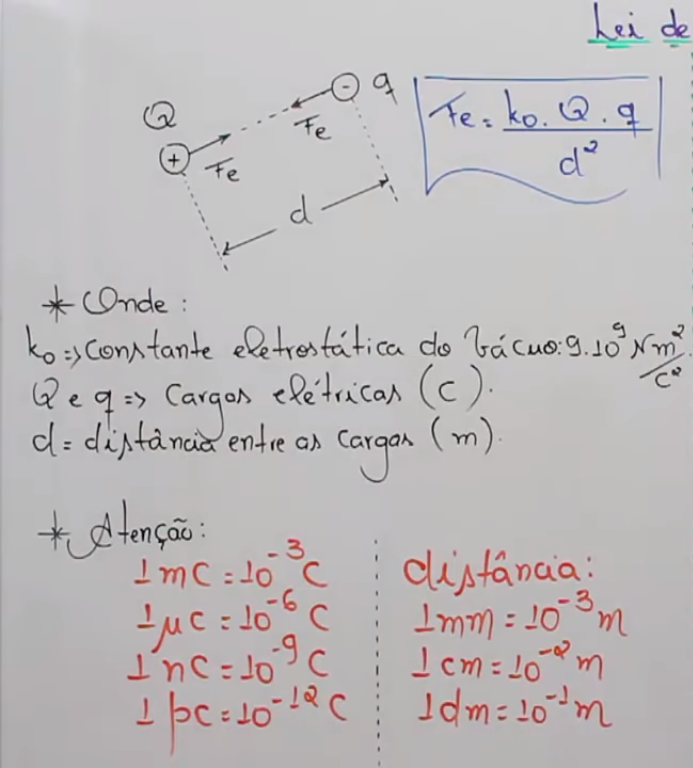 Lei de
Q
q
Fe
Fe
d
Fe = k₀ . Q . q
d²
* Onde :
k₀ => Constante eletrostática do Vácuo: 9.10⁹ Nm²/C²
Q e q => Cargas elétricas (C).
d = distância entre as Cargas (m).
* Atenção:
1 mC = 10⁻³ C
1 μC = 10⁻⁶ C
1 nC = 10⁻⁹ C
1 pC = 10⁻¹² C
distância:
1mm = 10⁻³ m
1 cm = 10⁻² m
1dm = 10⁻¹ m